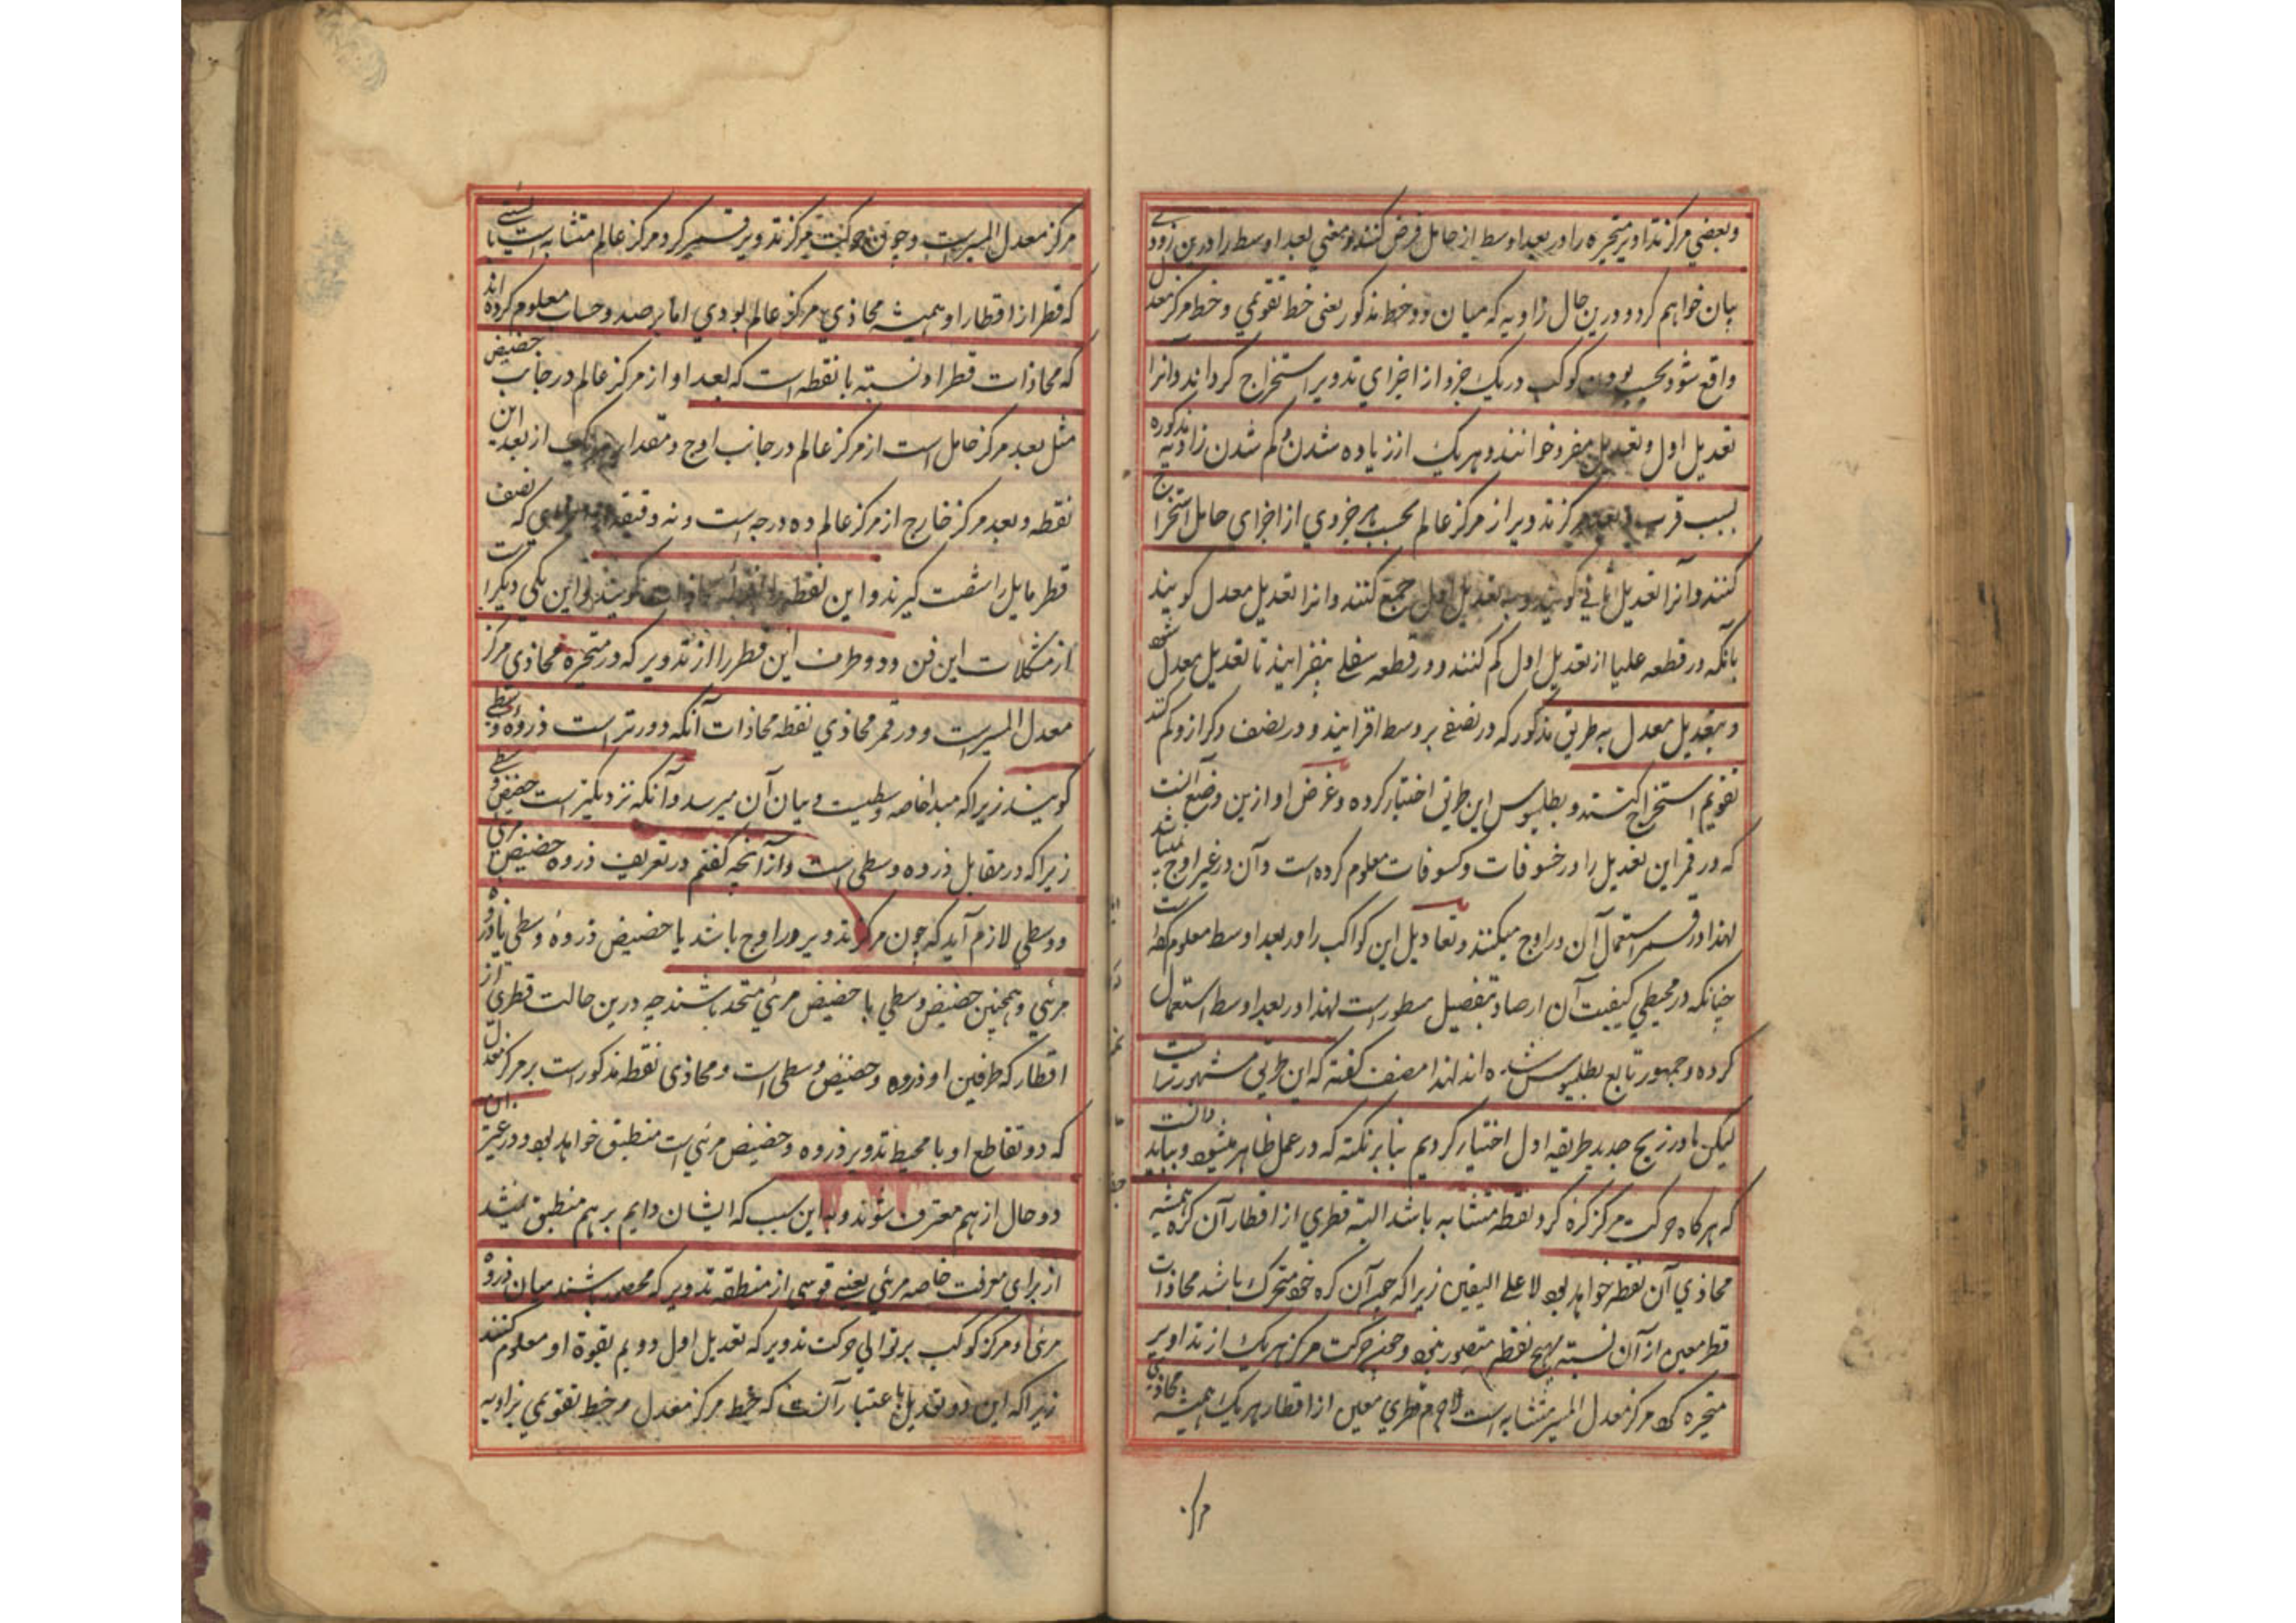 وبعضي مرکز تداویر متحیره را در بعد اوسط از حامل فرض کنند و معنی بعد اوسط را درین زودی
بیان خواهم کرد و درین حال زاویه که میان دو خط مذکور یعنی خط تقویمي و خط مرکز معدل
واقع شود بحسب بودن کوکب در یک جزو از اجزاي تدویر استخراج کرده اند و آنرا
تعدیل اول و تعدیل مفرد خوانند و هریک از زیاده شدن و کم شدن زاویه مذکوره
بسبب قرب و بعد مرکز تدویر از مرکز عالم بحسب هر جزوي از اجزای حامل استخراج
کنند و آنرا تعدیل ثاني کویند و به تعدیل اول جمع کنند و انرا تعدیل معدل کویند
بانکه در قطعه علیا از تعدیل اول کم کنند و در قطعه سفلے بیفزایند تا تعدیل معدل شود
و بتعدیل معدل به طریق مذکور که در نصفے بر وسط افزایند و در نصف دکر ازو کم کنند
تقویم استخراج کنند و بطلیموس این طریق اختیار کرده و غرض او ازین وضع آنست
که در قمر این تعدیل را در خسوفات و کسوفات معلوم کرده است و آن در غیر اوج نمیباشد
لهذا در قمر استعمال آن در اوج میکنند و تعادیل این کواکب را در بعد اوسط معلوم کرده است
چنانکه در مجسطي کیفیت آن ارصاد بتفصیل مسطور است لهذا در بعد اوسط استعمال
کرده و جمهور تابع بطلیموس شده اند لهذا مصنف کفته که این طریق مشهور تر است
لیکن ما در زیج جدید طریقه اول اختیار کردیم بنا بر نکته که در عمل ظاهر میشود و بباید دانست
که هر کاه حرکت مرکز کره کرد نقطه متشابه باشد البته قطري از اقطار آن کره همیشه
محاذي آن نقطه خواهد بود لا علے الیقین زیرا که چه آن کره خود متحرک باشد محاذات
قطر معین از آن نسبته بهیچ نقطه متصور نبود و چون حرکت مرکز هریک از تداویر
متحیره کرد مرکز معدل المسیر متشابه است لاجرم قطري معین از اقطار هریک همیشه محاذي
مرکز
مرکز معدل المسیر است و چون حرکت مرکز تدویر قمر کرد مرکز عالم متشابه است بایستے
که قطر از اقطار او همیشه محاذي مرکز عالم بودي اما برصد و حساب معلوم کرده اند
که محاذات قطر او نسبته با نقطه است که بعد او از مرکز عالم در جانب حضیض
مثل بعد مرکز حامل است از مرکز عالم در جانب اوج و مقدار هریک از بعد این
نقطه و بعد مرکز خارج از مرکز عالم ده درجه است و نه دقیقه که نصف
قطر مایل را شصت کیرند و این نقطه را نقطه محاذات کویند و این یکی دیکر است
از مشکلات این فن و دو طرف این قطر را از تدویر که در متحیره محاذي مرکز
معدل المسیر است و در قمر محاذي نقطه محاذات آنکه دورتر است ذروهٔ وسطے
کویند زیرا که مبدا خاصه وسطیست و بیان آن میرسد و آنکه نزدیکتر است حضیض وسطے
زیرا که در مقابل ذروه وسطی است و از آنچه کفتم در تعریف ذروه حضیض مرئی
و وسطي لازم آید که چون مرکز تدویر در اوج باشد یا حضیض ذروهٔ وسطي با ذروه
مرئي و همچنین حضیض وسطي با حضیض مرئي متحد باشند چه درین حالت قطری از
اقطار که طرفین او ذروه و حضیض وسطی است و محاذي نقطه مذکور است بر مرکز معدل
که دو تقاطع او با محیط تدویر ذروه و حضیض مرئي است منطبق خواهد بود و در غیر این
دو حال از هم مفترق شوند و به این سبب که ایشان دایم بر هم منطبق نیستند
از برای معرفت خاصه مرئي یعنے قوسی از منطقه تدویر که محصور باشند میان ذروه
مرئی و مرکز کوکب بر توالي حرکت تدویر که تعدیل اول و دویم بقوة او معلوم کنند
زیرا که این دو تعدیل باعتبار آنست که خط مرکز معدل مر خط تقویمي بزاویه